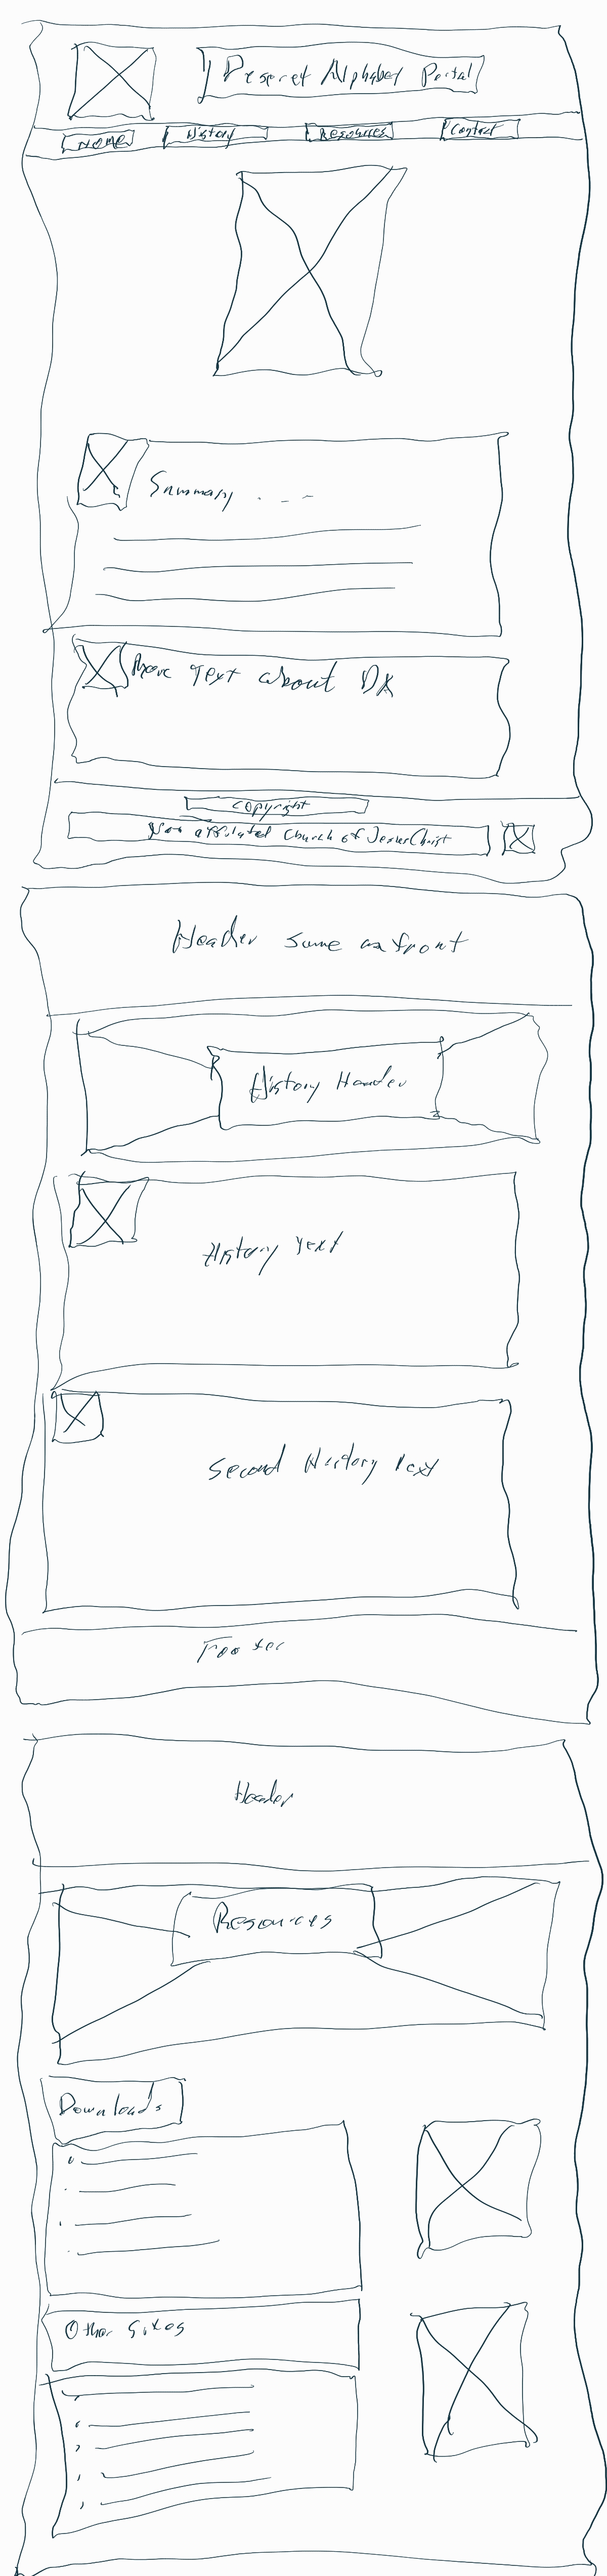 Deseret Alphabet Portal
HOME History Resources Contact
Summary . - -
More Text about DA
copyright
Not affiliated Church of Jesus Christ
Header same as front
History Header
History Text
Second History Text
Footer
Header
Resources
Downloads
Other Sites